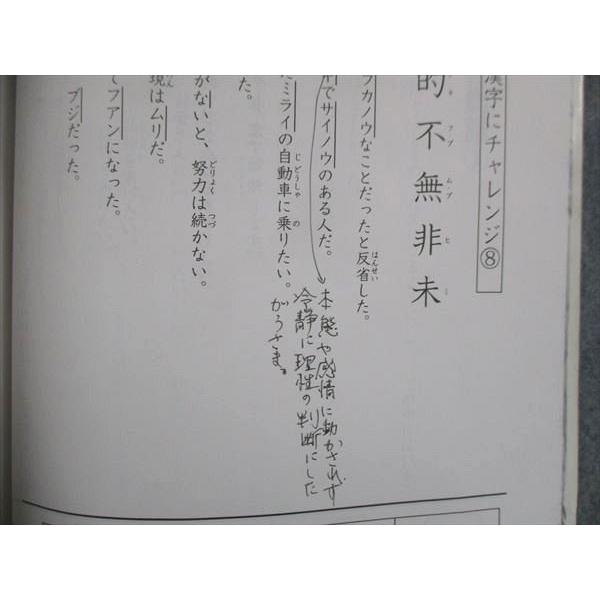 漢字にチャレンジ⑧
的不無非未
テキ フブ ムブ ヒ ミ
フカノウなことだったと反省した。
はんせい
でサイノウのある人だ。
本能や感情に動かされず
冷静に理性の判断にした
がうさま。
ミライの自動車に乗りたい。
じどうしゃ の
た。
がないと、努力は続かない。
どりょく つづ
はムリだ。
フアンになった。
ブジだった。